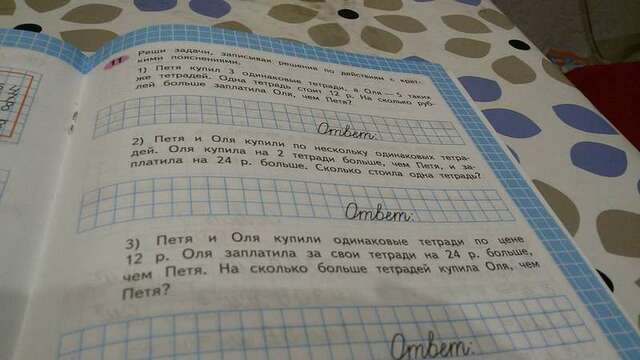 11 Реши задачи, записывая решение по действиям с крат-
кими пояснениями.
1) Петя купил 3 одинаковые тетради, а Оля — 5 таких
же тетрадей. Одна тетрадь стоит 12 р. На сколько руб-
лей больше заплатила Оля, чем Петя?
Ответ:
2) Петя и Оля купили по нескольку одинаковых тетра-
дей. Оля купила на 2 тетради больше, чем Петя, и за-
платила на 24 р. больше. Сколько стоила одна тетрадь?
Ответ:
3) Петя и Оля купили одинаковые тетради по цене
12 р. Оля заплатила за свои тетради на 24 р. больше,
чем Петя. На сколько больше тетрадей купила Оля, чем
Петя?
Ответ: